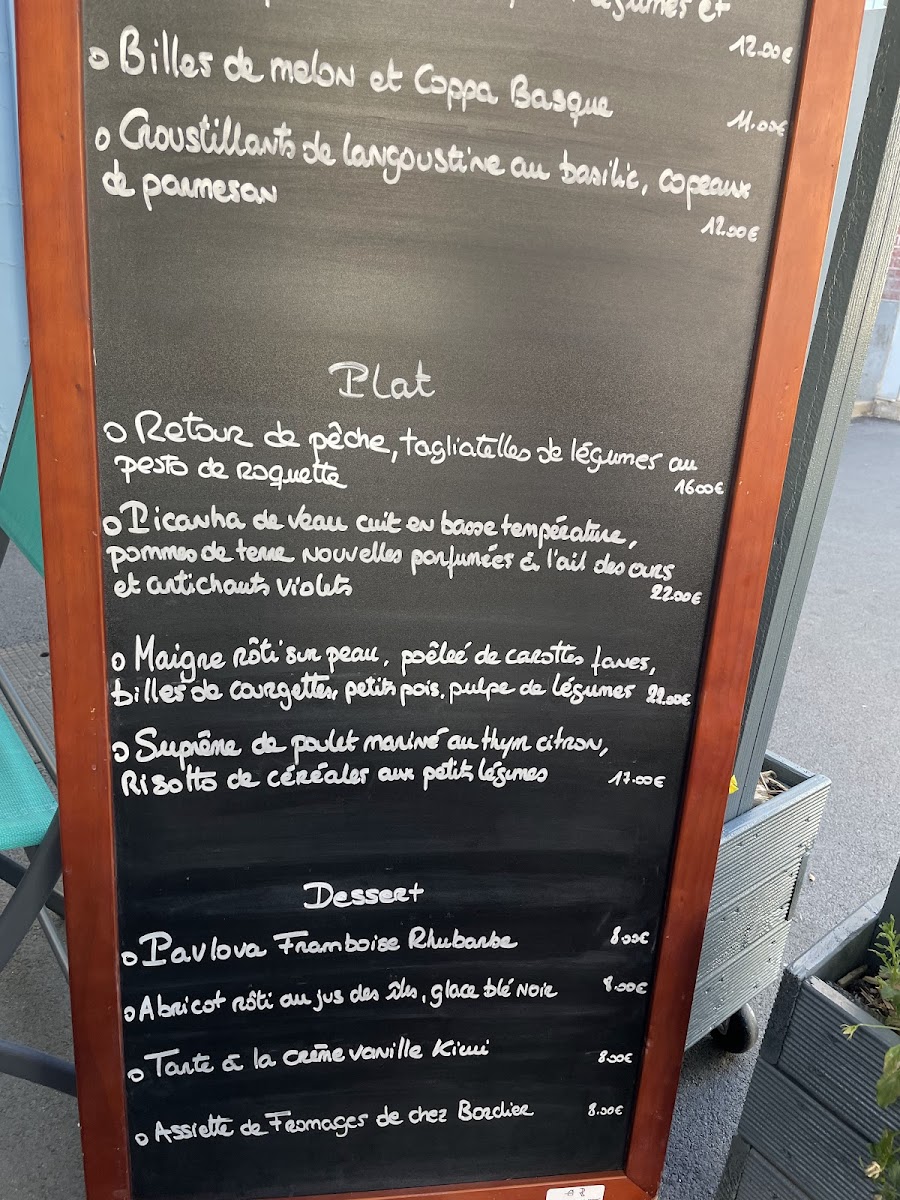 légumes et
12.00€
o Billes de melon et Coppa Basque
11.00€
o Croustillants de langoustine au basilic, copeaux
de parmesan
12.00€
Plat
o Retour de pêche, tagliatelles de légumes au
pesto de roquette
16.00€
o Picanha de veau cuit en basse température,
pommes de terre nouvelles parfumées à l'ail des ours
et artichauts violets
22.00€
o Maigre rôti sur peau, poêleé de carottes fanes,
billes de courgettes, petits pois, pulpe de légumes 22.00€
o Suprême de poulet mariné au thym citron,
Risotto de céréales aux petits légumes 17.00€
Dessert
o Pavlova Framboise Rhubarbe 8.00€
o Abricot rôti au jus des îles, glace blé noir 8.00€
o Tarte à la crème vanille Kiwi 8.00€
o Assiette de Fromages de chez Bordier 8.00€